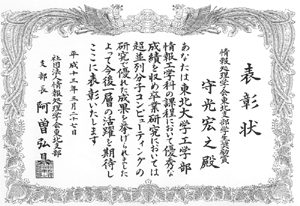 表彰状
情報処理学会東北支部学生奨励賞
守光宏之殿
あなたは東北大学工学部
情報工学科の課程において優秀な
成績を収め卒業研究においては
超並列分子コンピューティングの
研究で優れた成果を挙げられました
よって今後一層の活躍を期待し
ここに表彰いたします
平成十三年三月二十七日
社団法人情報処理学会東北支部
支部長 阿曽弘具